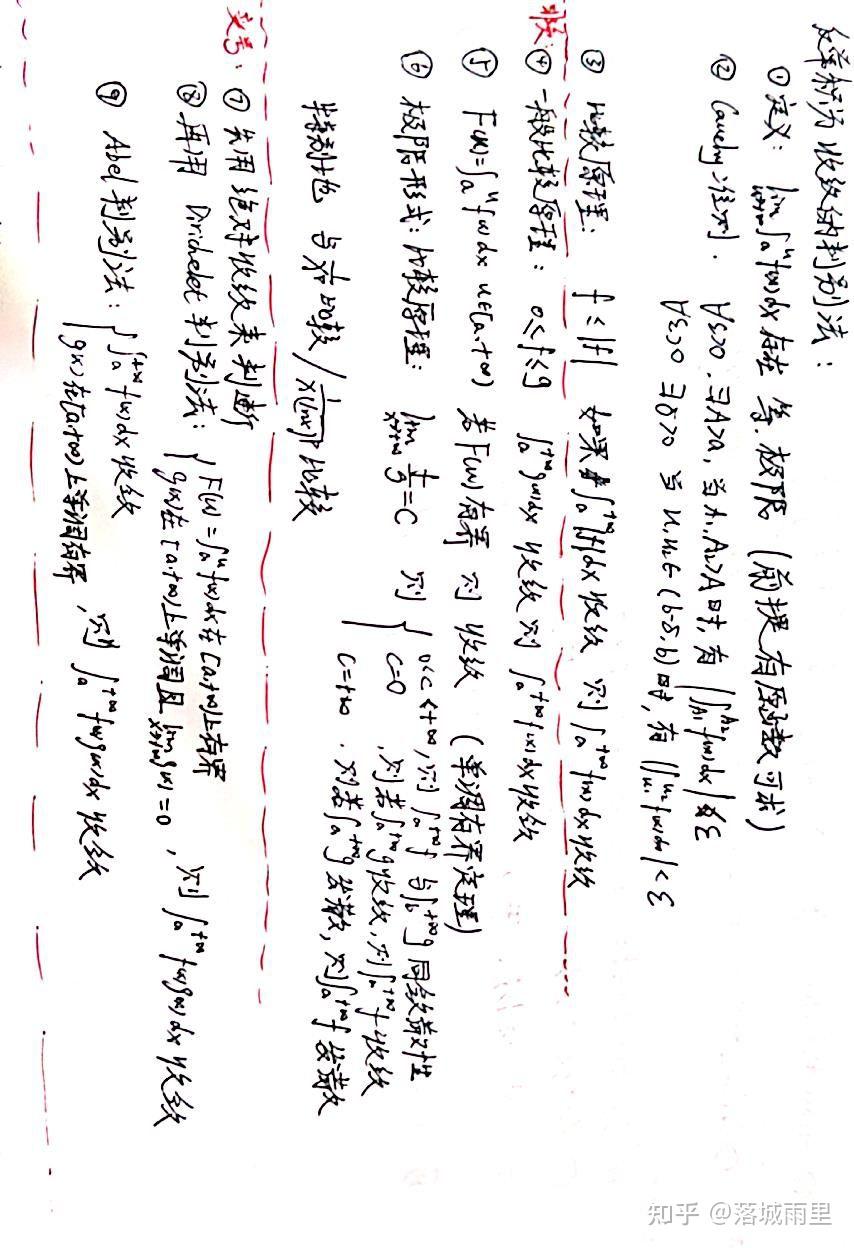 反常积分收敛的判别法：
① 定义： lim_{u→+∞} ∫_a^u f(x)dx 存在 等 极限 (前提有原函数可求)
② Cauchy准则. ∀ε>0, ∃A>a, 当A₁,A₂>A时, 有 |∫_{A₁}^{A₂} f(x)dx| < ε
∀ε>0 ∃δ>0 当 u₁,u₂∈(b-δ,b)时, 有 |∫_{u₁}^{u₂} f(x)dx| < ε
③ 比较原理: f ≤ |f| 如果 ∫_a^{+∞} |f|dx 收敛 则 ∫_a^{+∞} f(x)dx 收敛
非负: ④ 一般比较原理: 0≤f≤g ∫_a^{+∞} g(x)dx 收敛 则 ∫_a^{+∞} f(x)dx 收敛
⑤ F(u)=∫_a^u f(x)dx u∈[a,+∞) 若F(u)有界 则 收敛 (单调有界定理)
⑥ 极限形式: 比较原理: lim_{x→+∞} f/g = C 则 { 0<C<+∞, 则 ∫_a^{+∞} f 与 ∫_a^{+∞} g 同敛散性
C=0 , 则若∫_a^{+∞} g 收敛, 则∫_a^{+∞} f 收敛
C=+∞ , 则若∫_a^{+∞} g 发散, 则∫_a^{+∞} f 发散
特别地 与 1/x^p 比较 / 1/(x(lnx)^p) 比较
变号: ⑦ 先用 绝对收敛来判断
⑧ 再用 Dirichelet 判别法: { F(u)=∫_a^u f(x)dx在[a,+∞)上有界
g(x)在[a,+∞)上单调且 lim_{x→+∞} g(x)=0 , 则 ∫_a^{+∞} f(x)g(x)dx 收敛
⑨ Abel判别法: { ∫_a^{+∞} f(x)dx 收敛
g(x)在[a,+∞)上单调有界 , 则 ∫_a^{+∞} f(x)g(x)dx 收敛
知乎 @落城雨里